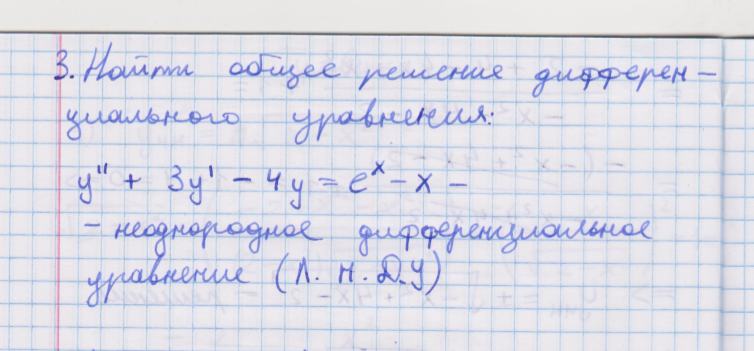 3. Найти общее решение дифферен-
циального уравнения:
y'' + 3y' - 4y = e^x - x -
- неоднородное дифференциальное
уравнение (Л. Н. Д. У)